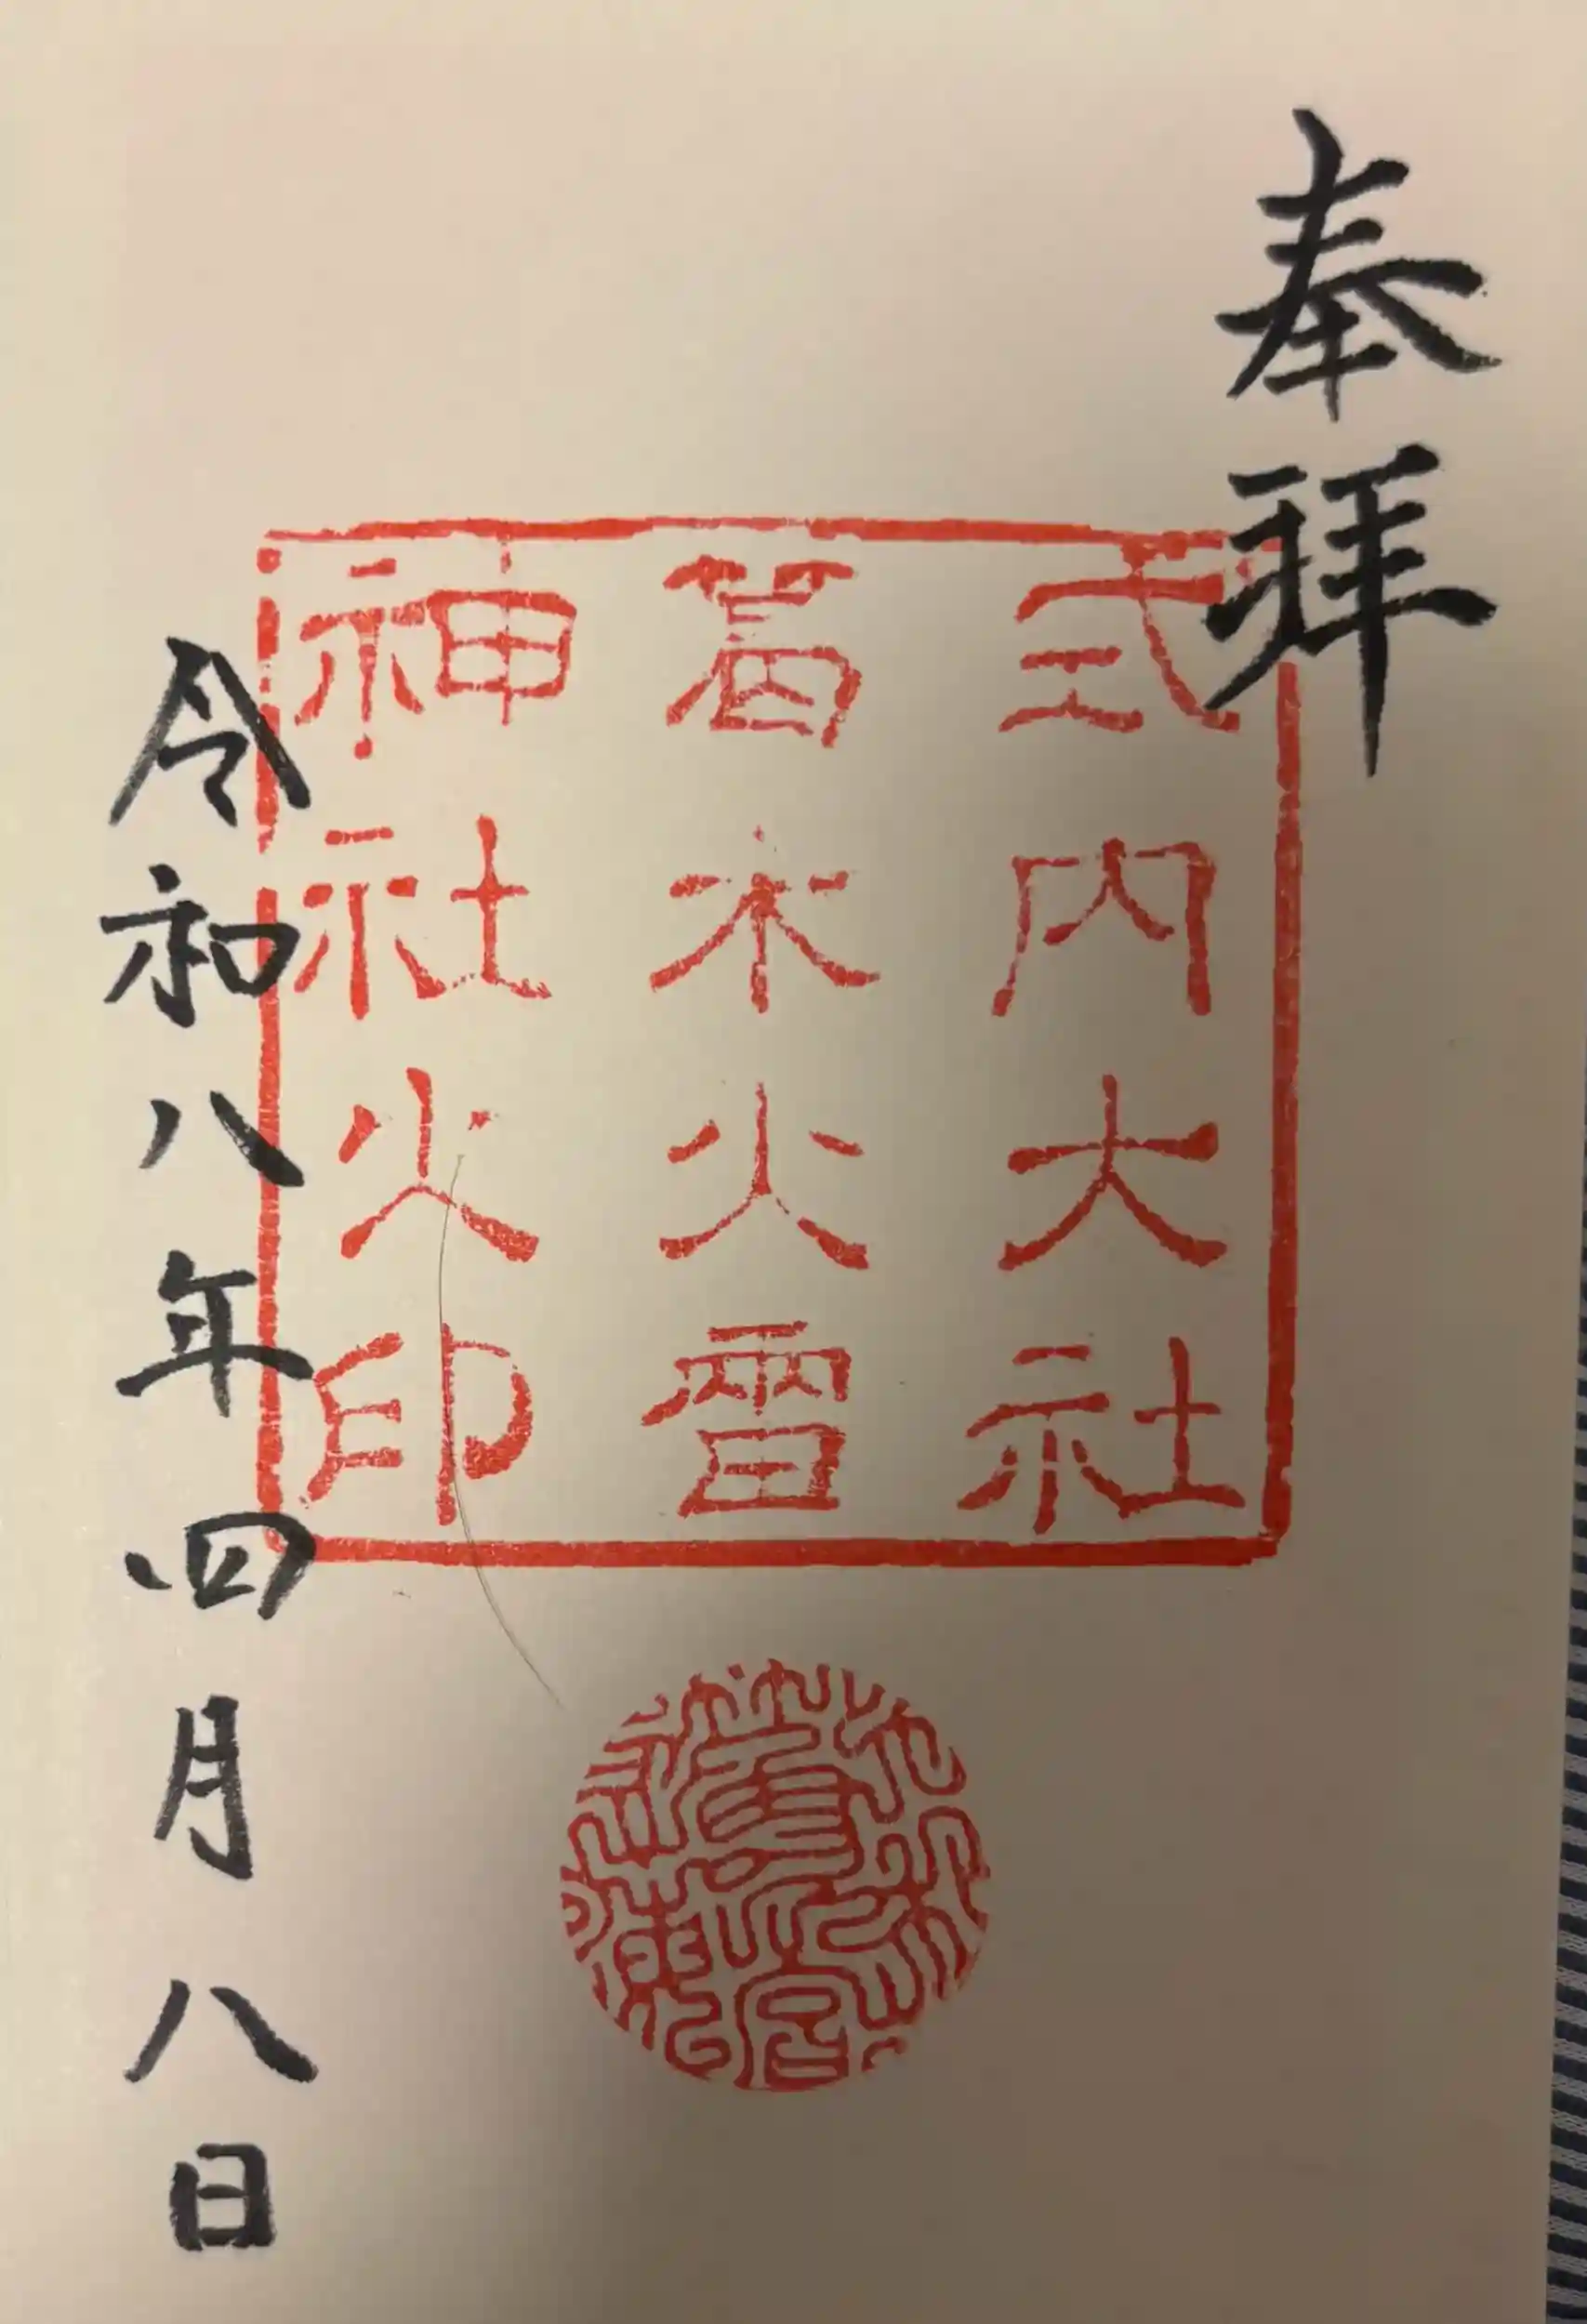 奉拝
式内大社
葛木火雷
神社火印
令和八年四月八日